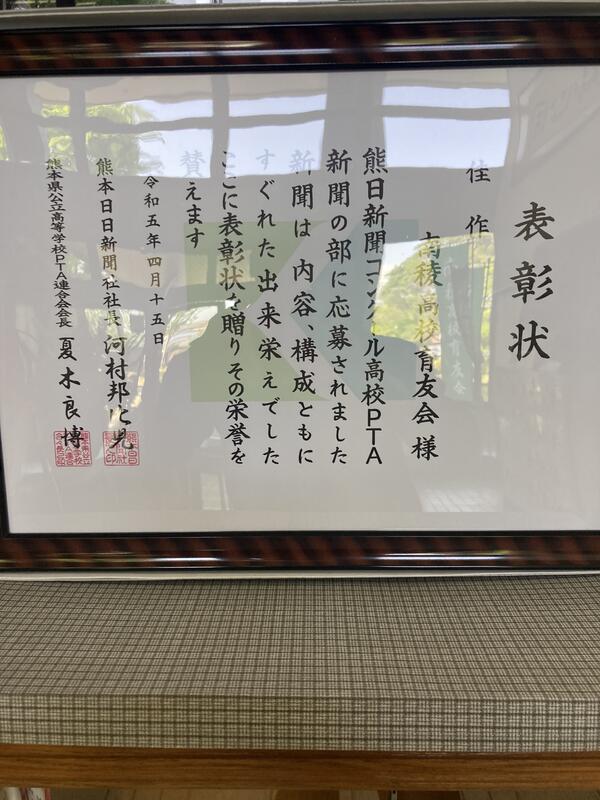 表彰状
佳作
南稜高校育友会様
熊日新聞コンクール高校PTA
新聞の部に応募されました
新聞は内容、構成ともに
すぐれた出来栄えでした
ここに表彰状を贈りその栄誉を
賛えます
令和五年四月十五日
熊本日日新聞社社長 河村邦比児
熊本県公立高等学校PTA連合会会長 夏木良博